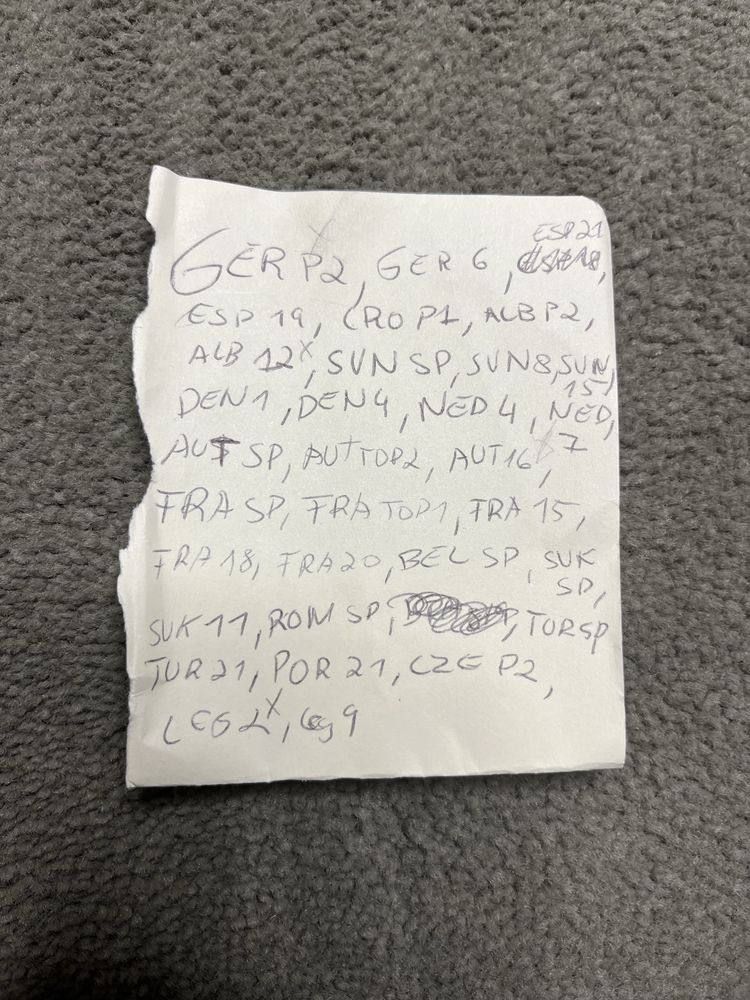 ESP 21
GER P2, GER 6,
ESP 19, CRO P1, ALB P2,
ALB 12 X, SVN SP, SVN 8, SVN
15,
DEN 1, DEN 4, NED 4, NED,
7
AUT SP, AUT TOP2, AUT 16,
FRA SP, FRA TOP1, FRA 15,
FRA 18, FRA 20, BEL SP, SUK
SP,
SUK 11, ROM SP, TUR SP
TUR 21, POR 21, CZE P2,
LEG 2 X, Leg 9